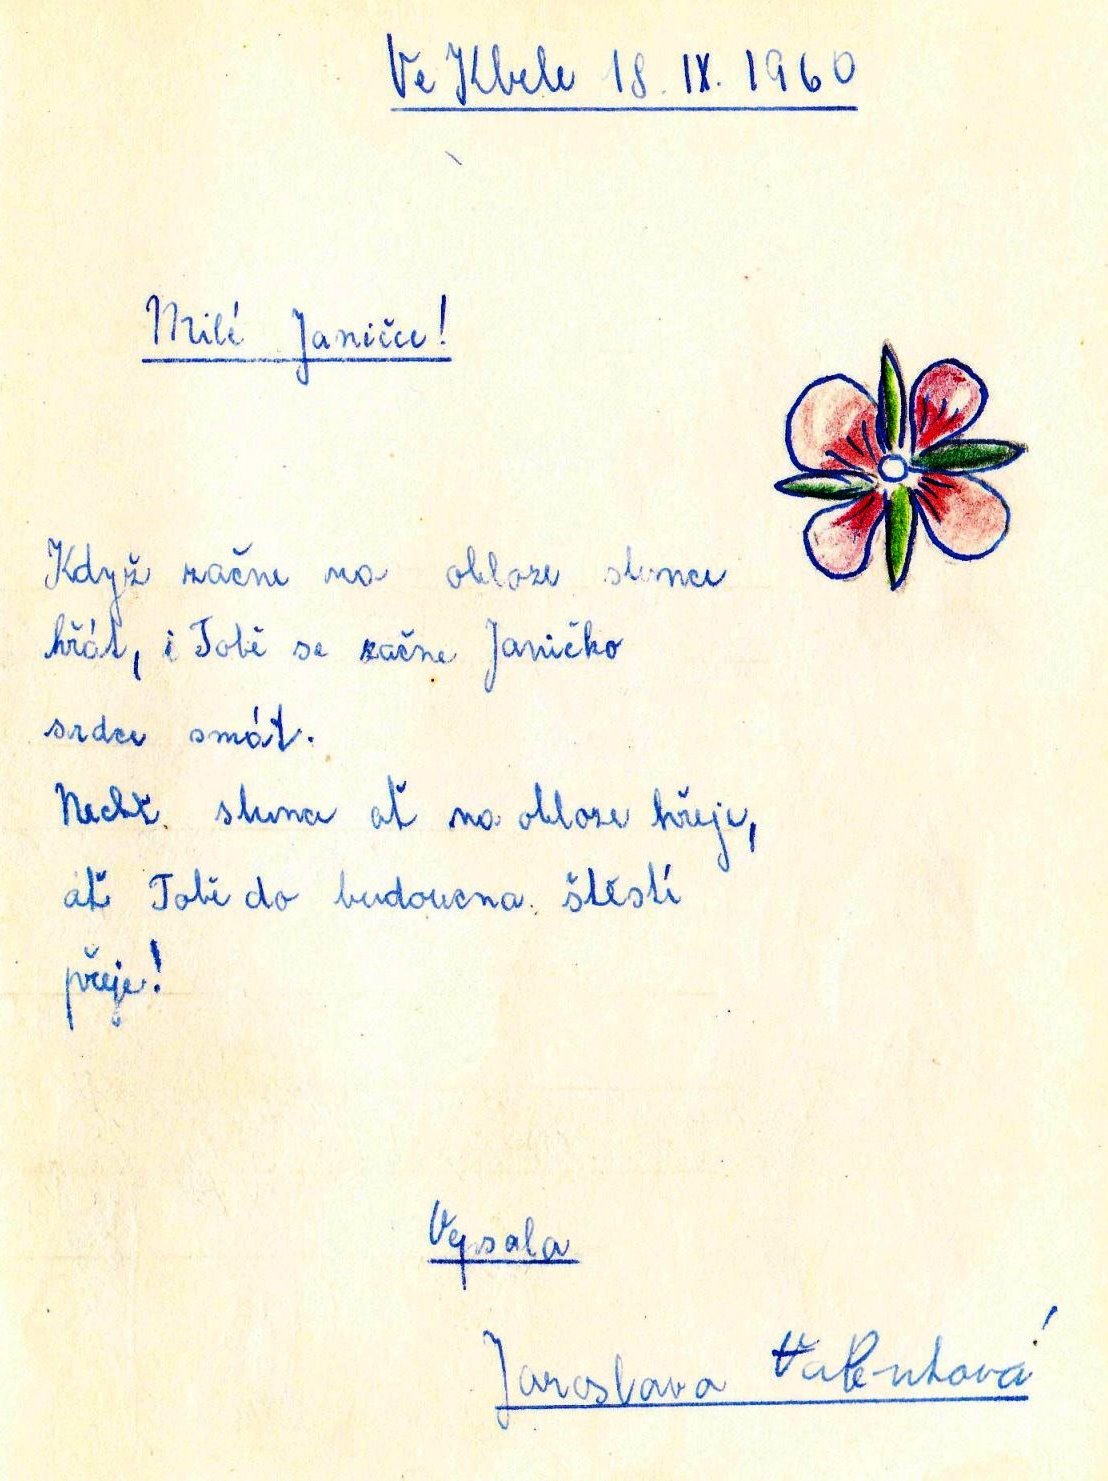 Ve Kbele 18. IX. 1960
Milé Janičce!
Když začne na obloze slunce
hřát, i Tobě se začne Janičko
srdce smát.
Nechť slunce ať na obloze hřeje,
ať Tobě do budoucna štěstí
přeje!
Vepsala
Jaroslava